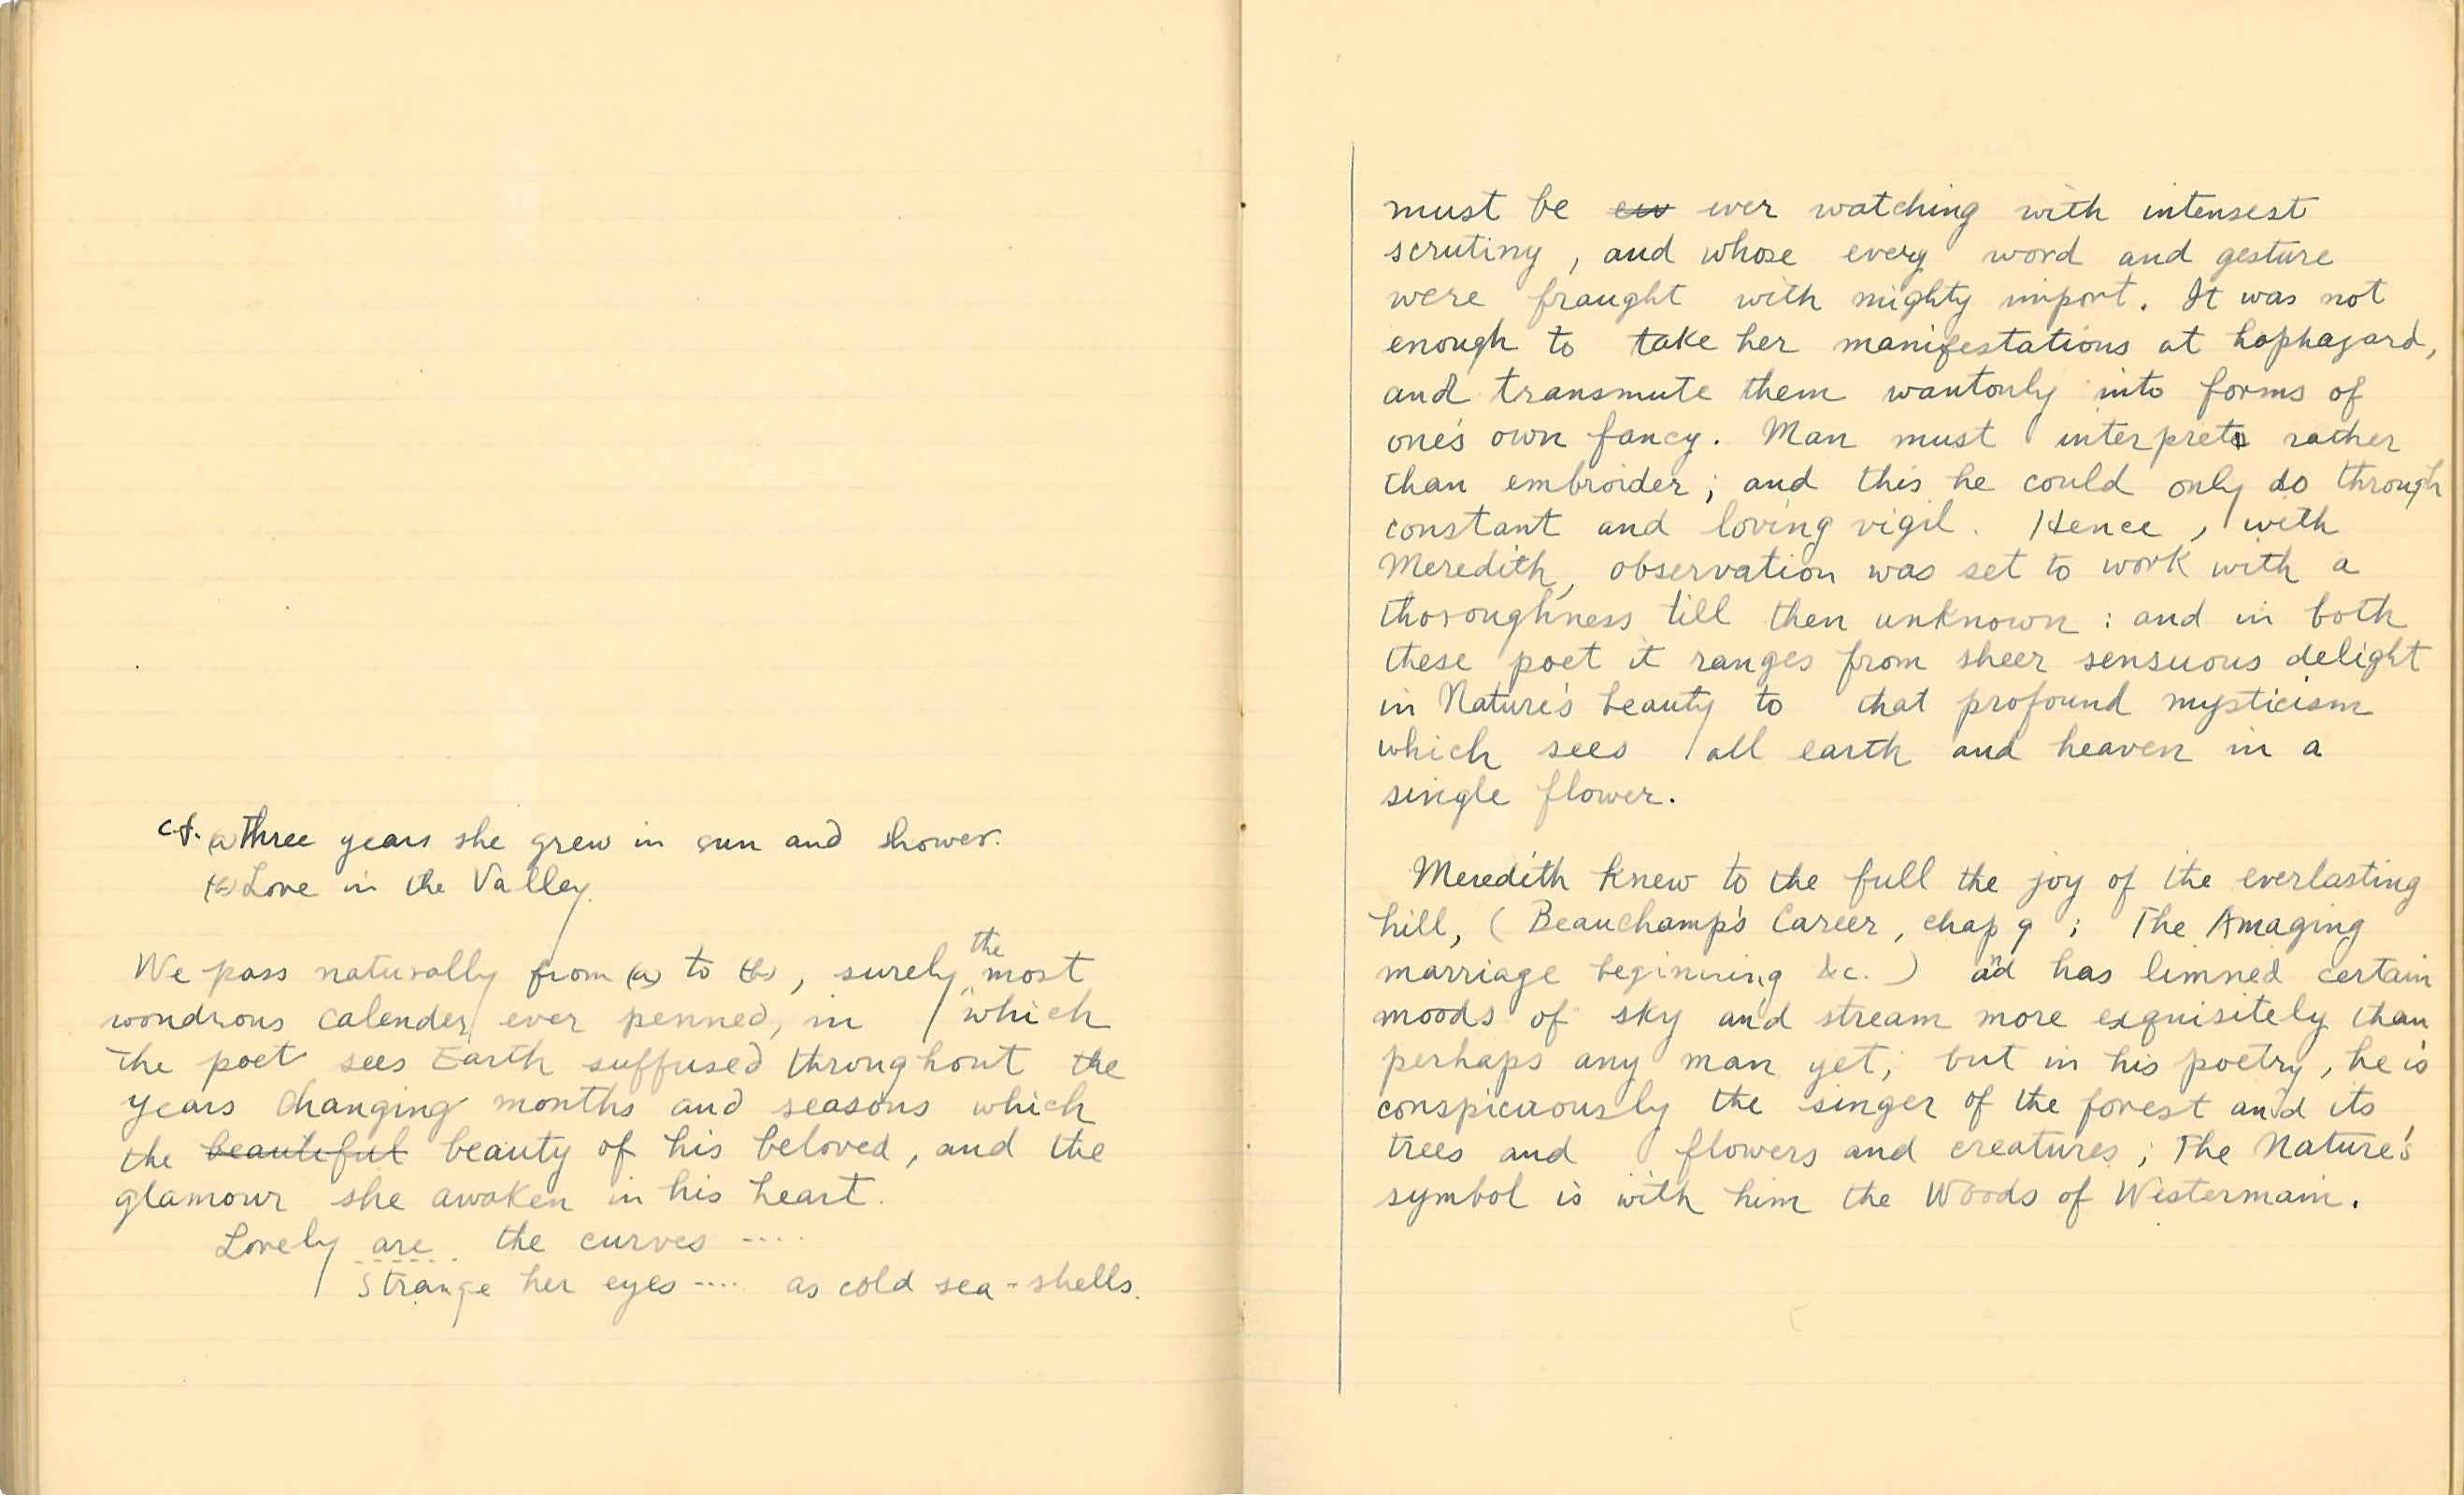 cf. (a) Three years she grew in sun and shower.
(b) Love in the Valley.
We pass naturally from (a) to (b), surely the most
wondrous calender ever penned, in which
the poet sees Earth suffused throughout the
years changing months and seasons which
the beautiful beauty of his beloved, and the
glamour she awaken in his heart.
Lovely are the curves ....
Strange her eyes .... as cold sea-shells.
must be ev ever watching with intensest
scrutiny, and whose every word and gesture
were fraught with mighty import. It was not
enough to take her manifestations at haphazard,
and transmute them wantonly into forms of
one's own fancy. Man must interpret rather
than embroider; and this he could only do through
constant and loving vigil. Hence, with
Meredith, observation was set to work with a
thoroughness till then unknown: and in both
these poet it ranges from sheer sensuous delight
in Nature's beauty to that profound mysticism
which sees all earth and heaven in a
single flower.
Meredith knew to the full the joy of the everlasting
hill, (Beauchamp's Career, chap 9; The Amazing
marriage beginning &c.) and has limned certain
moods of sky and stream more exquisitely than
perhaps any man yet; but in his poetry, he is
conspicuously the singer of the forest and its
trees and flowers and creatures; The Nature's
symbol is with him the Woods of Westermain.